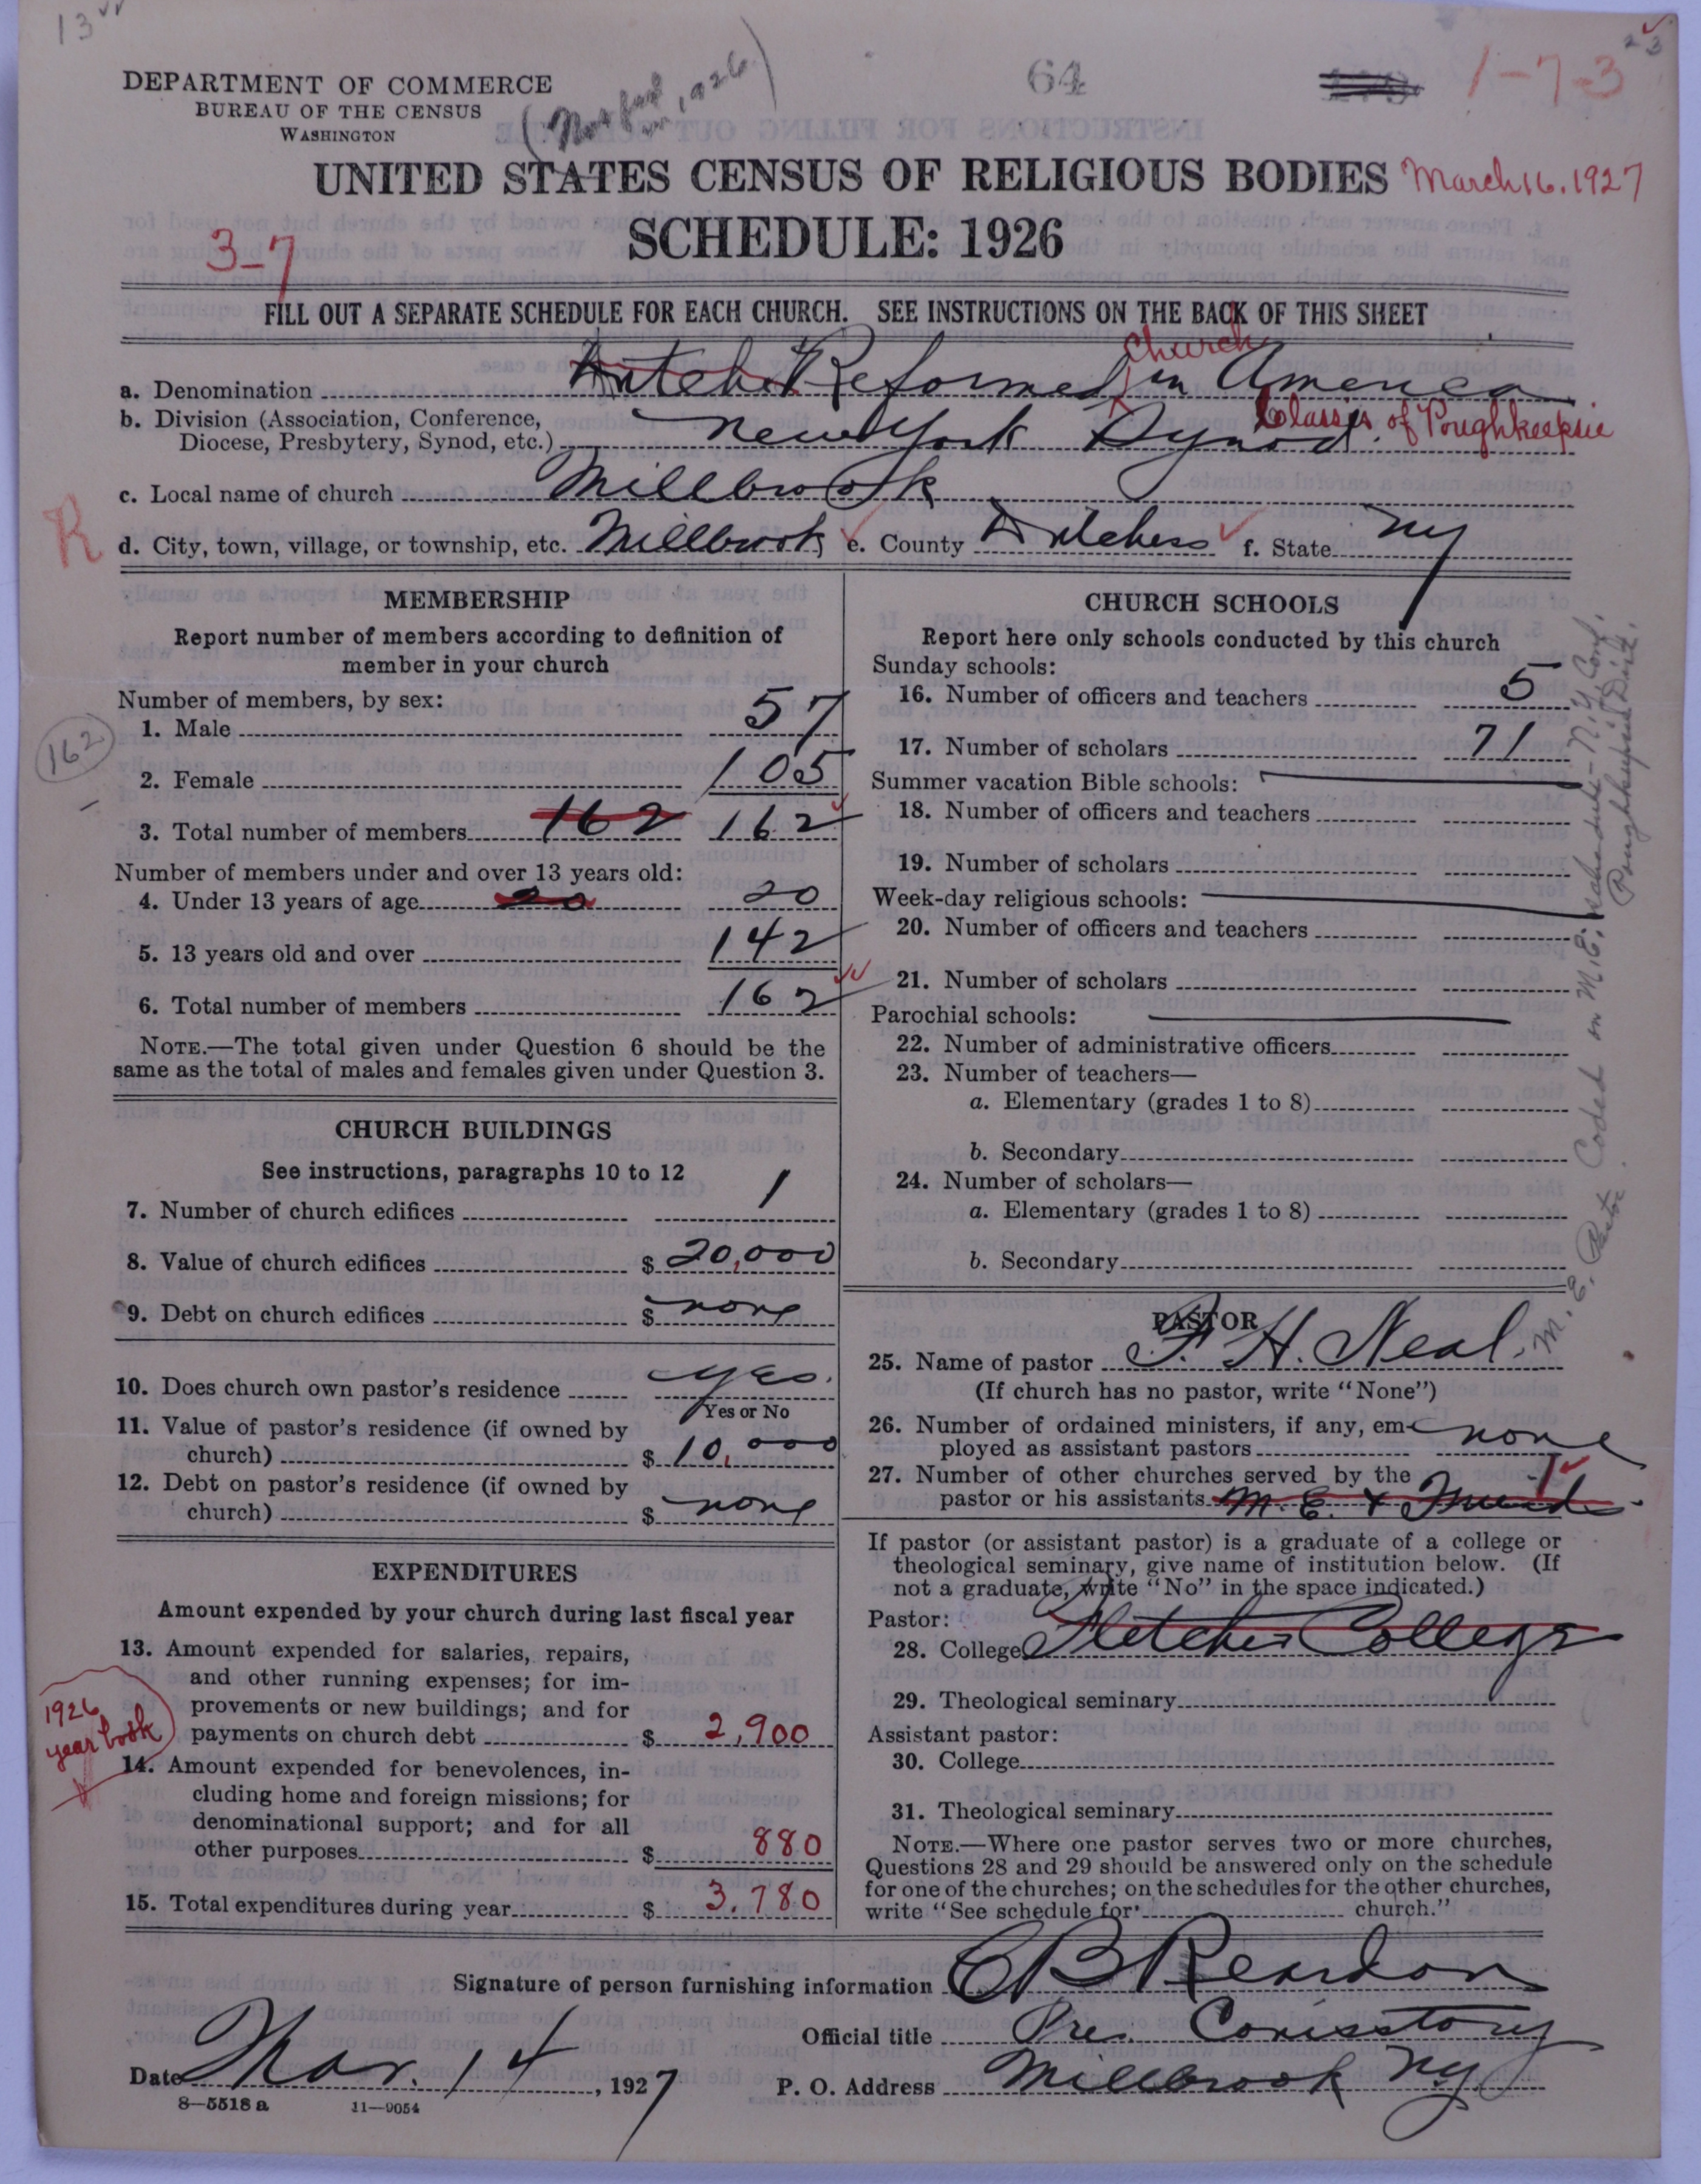 13
DEPARTMENT OF COMMERCE
BUREAU OF THE CENSUS
WASHINGTON
1926
64
1-7-3
23
UNITED STATES CENSUS OF RELIGIOUS BODIES
March 16, 1927
SCHEDULE: 1926
3-7
FILL OUT A SEPARATE SCHEDULE FOR EACH CHURCH. SEE INSTRUCTIONS ON THE BACK OF THIS SHEET
Church
a. Denomination Dutch Reformed in America
b. Division (Association, Conference,
Diocese, Presbytery, Synod, etc.) New York Synod. Classis of Poughkeepsie
c. Local name of church Millbrook
R
d. City, town, village, or township, etc. Millbrook e. County Dutchess f. State NY
MEMBERSHIP
Report number of members according to definition of
member in your church
Number of members, by sex:
1. Male 57
162
2. Female 105
3. Total number of members 162 162
Number of members under and over 13 years old:
4. Under 13 years of age 20 20
5. 13 years old and over 142
6. Total number of members 162
NOTE.—The total given under Question 6 should be the
same as the total of males and females given under Question 3.
CHURCH BUILDINGS
See instructions, paragraphs 10 to 12
7. Number of church edifices 1
8. Value of church edifices $ 20,000
9. Debt on church edifices $ none
10. Does church own pastor's residence yes.
Yes or No
11. Value of pastor's residence (if owned by
church) $ 10,000
12. Debt on pastor's residence (if owned by
church) $ none
EXPENDITURES
Amount expended by your church during last fiscal year
13. Amount expended for salaries, repairs,
and other running expenses; for im-
provements or new buildings; and for
payments on church debt $ 2,900
1926
year book
14. Amount expended for benevolences, in-
cluding home and foreign missions; for
denominational support; and for all
other purposes $ 880
15. Total expenditures during year $ 3,780
CHURCH SCHOOLS
Report here only schools conducted by this church
Sunday schools:
16. Number of officers and teachers 5
17. Number of scholars 71
Summer vacation Bible schools:
18. Number of officers and teachers
19. Number of scholars
Week-day religious schools:
20. Number of officers and teachers
21. Number of scholars
Parochial schools:
22. Number of administrative officers
23. Number of teachers—
a. Elementary (grades 1 to 8)
b. Secondary
24. Number of scholars—
a. Elementary (grades 1 to 8)
b. Secondary
M. E. Pastor. Coded on M. E. schedule - N.Y. Conf.
Poughkeepsie Dist.
PASTOR
25. Name of pastor F. H. Neal.
(If church has no pastor, write "None")
26. Number of ordained ministers, if any, em-
ployed as assistant pastors none
27. Number of other churches served by the
pastor or his assistants M. E. & 1
If pastor (or assistant pastor) is a graduate of a college or
theological seminary, give name of institution below. (If
not a graduate, write "No" in the space indicated.)
Pastor:
28. College Fletcher College
29. Theological seminary
Assistant pastor:
30. College
31. Theological seminary
NOTE.—Where one pastor serves two or more churches,
Questions 28 and 29 should be answered only on the schedule
for one of the churches; on the schedules for the other churches,
write "See schedule for church."
Signature of person furnishing information C B Reardon
Official title Pres. Conisstory
Date Mar. 14, 1927
P. O. Address Millbrook NY
8—5518 a 11—9054